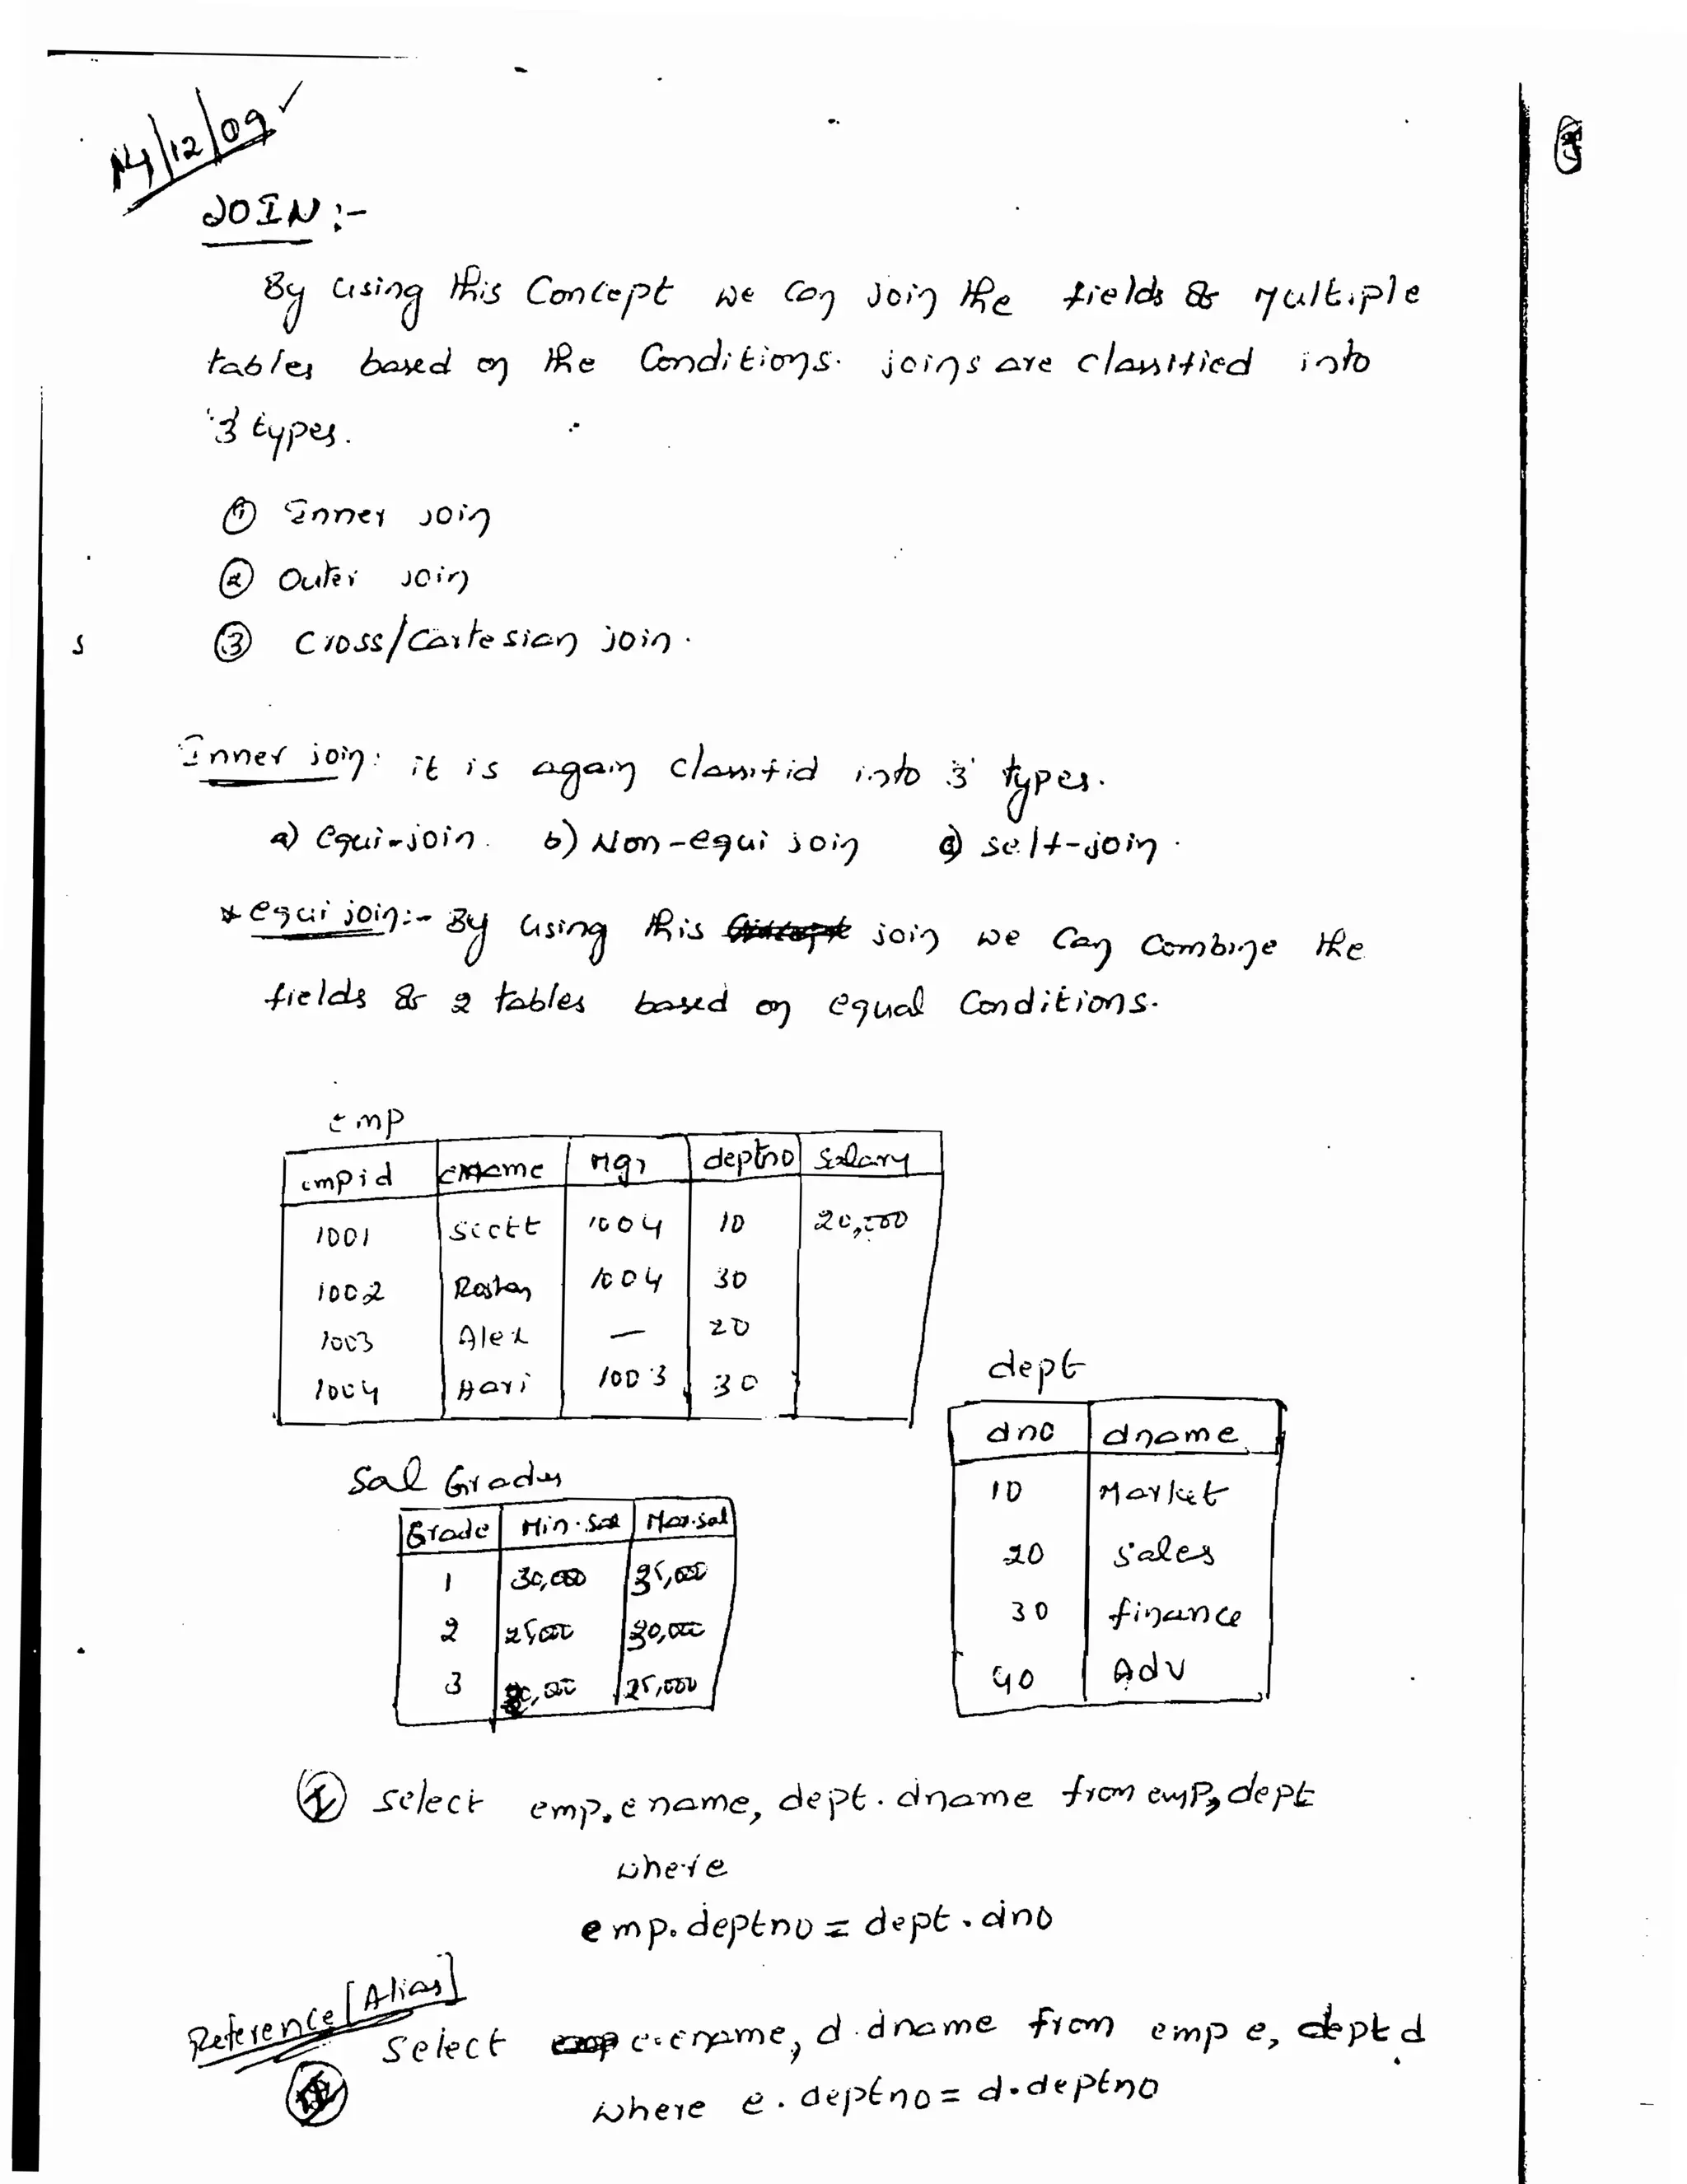 14/12/09
JOIN :-
By using this Concept we can join the fields of Multiple
tables based on the Conditions. joins are classified into
3 types.
① Inner join
② Outer join
③ Cross/Cartesian join.
s
Inner join: it is again classifid into 3 types.
a) Equi-join. b) Non-equi join c) self-join.
* equi join:- By using this join we Can Combine the
fields of 2 tables based on equal Conditions.
emp
empid ename Mgr deptno Salary
1001 Scott 1004 10 20,000
1002 1004 30
1003 Alex — 20
1004 Hari 1003 30
dept
dno dname
10 Market
20 Sales
30 finance
40 Adv
Sal Grades
Grade Min.Sal Max.Sal
1 30,000 35,000
2 25000 30,000
3 25,000
① select emp.ename, dept.dname from emp, dept
where
emp.deptno = dept.dno
Reference [Alias]
Select e.ename, d.dname from emp e, dept d
where e.deptno = d.deptno